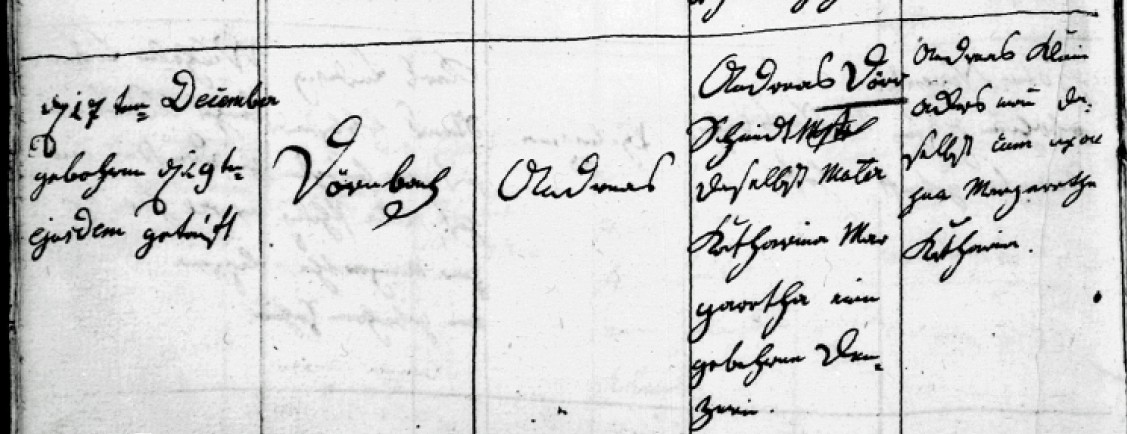 d 17 ten December
gebohren d 19 ten
ejusdem getauft
Dörnbach
Andreas
Andreas Dörr
Schmidt
daselbst Mater
Katharina Mar
garetha eine
gebohrne
Andreas Klein
daselbst cum uxore
sua Margaretha
Katharina.